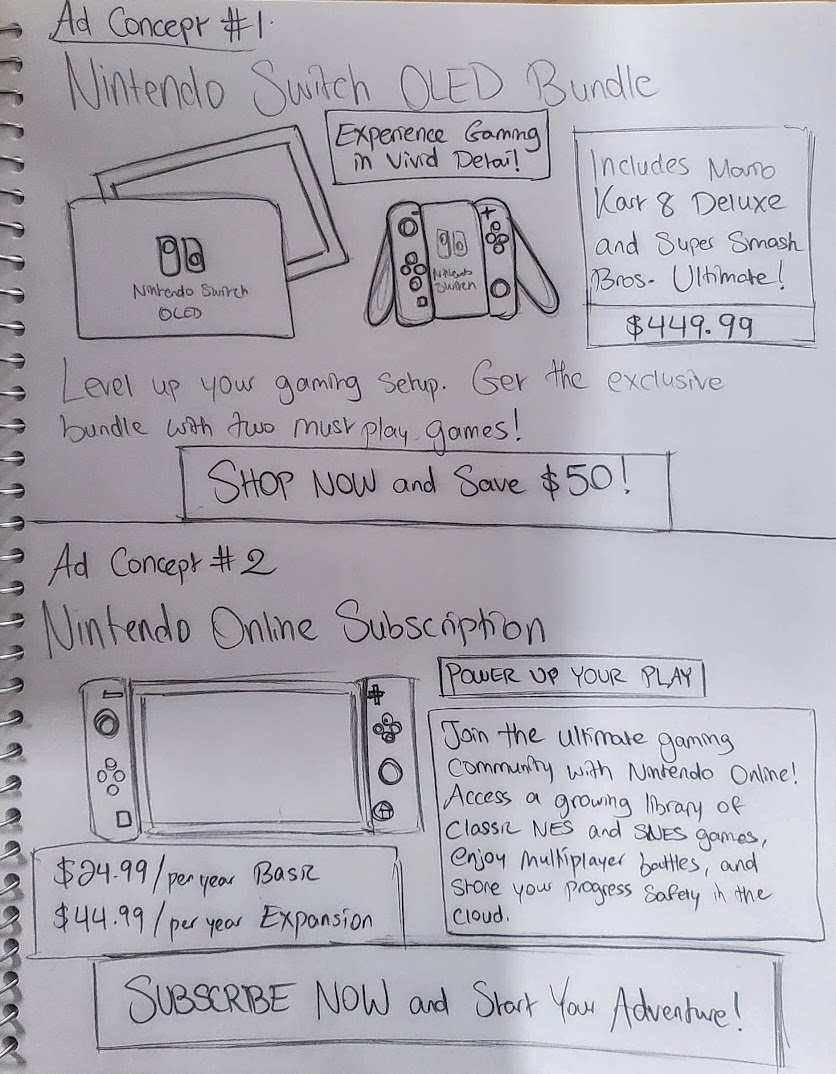 Ad Concept #1.
Nintendo Switch OLED Bundle
Experience Gaming
in Vivid Detail!
Nintendo Switch
OLED
Nintendo
Switch
Includes Mario
Kart 8 Deluxe
and Super Smash
Bros. Ultimate!
$449.99
Level up your gaming setup. Get the exclusive
bundle with two must play games!
SHOP NOW and Save $50!
Ad Concept #2
Nintendo Online Subscription
POWER UP YOUR PLAY
Join the ultimate gaming
Community with Nintendo Online!
Access a growing library of
Classic NES and SNES games,
enjoy multiplayer battles, and
store your progress Safely in the
cloud.
$24.99/per year Basic
$44.99/per year Expansion
SUBSCRIBE NOW and Start Your Adventure!